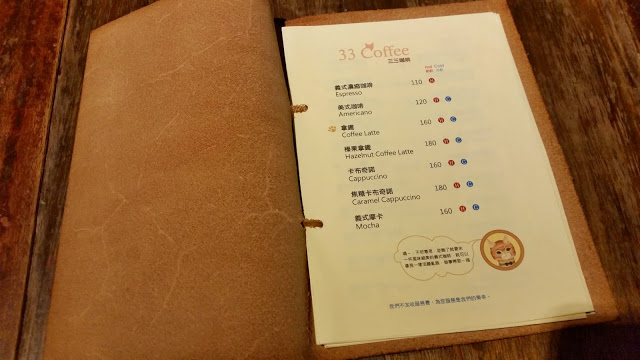 33 Coffee
三三咖啡
Hot Cold
義式濃縮咖啡 110 H
Espresso
美式咖啡 120 H C
Americano
拿鐵 160 H C
Coffee Latte
榛果拿鐵 180 H C
Hazelnut Coffee Latte
卡布奇諾 160 H C
Cappuccino
焦糖卡布奇諾 180 H C
Caramel Cappuccino
義式摩卡 160 H C
Mocha
我們不加收服務費，為您服務是我們的榮幸。